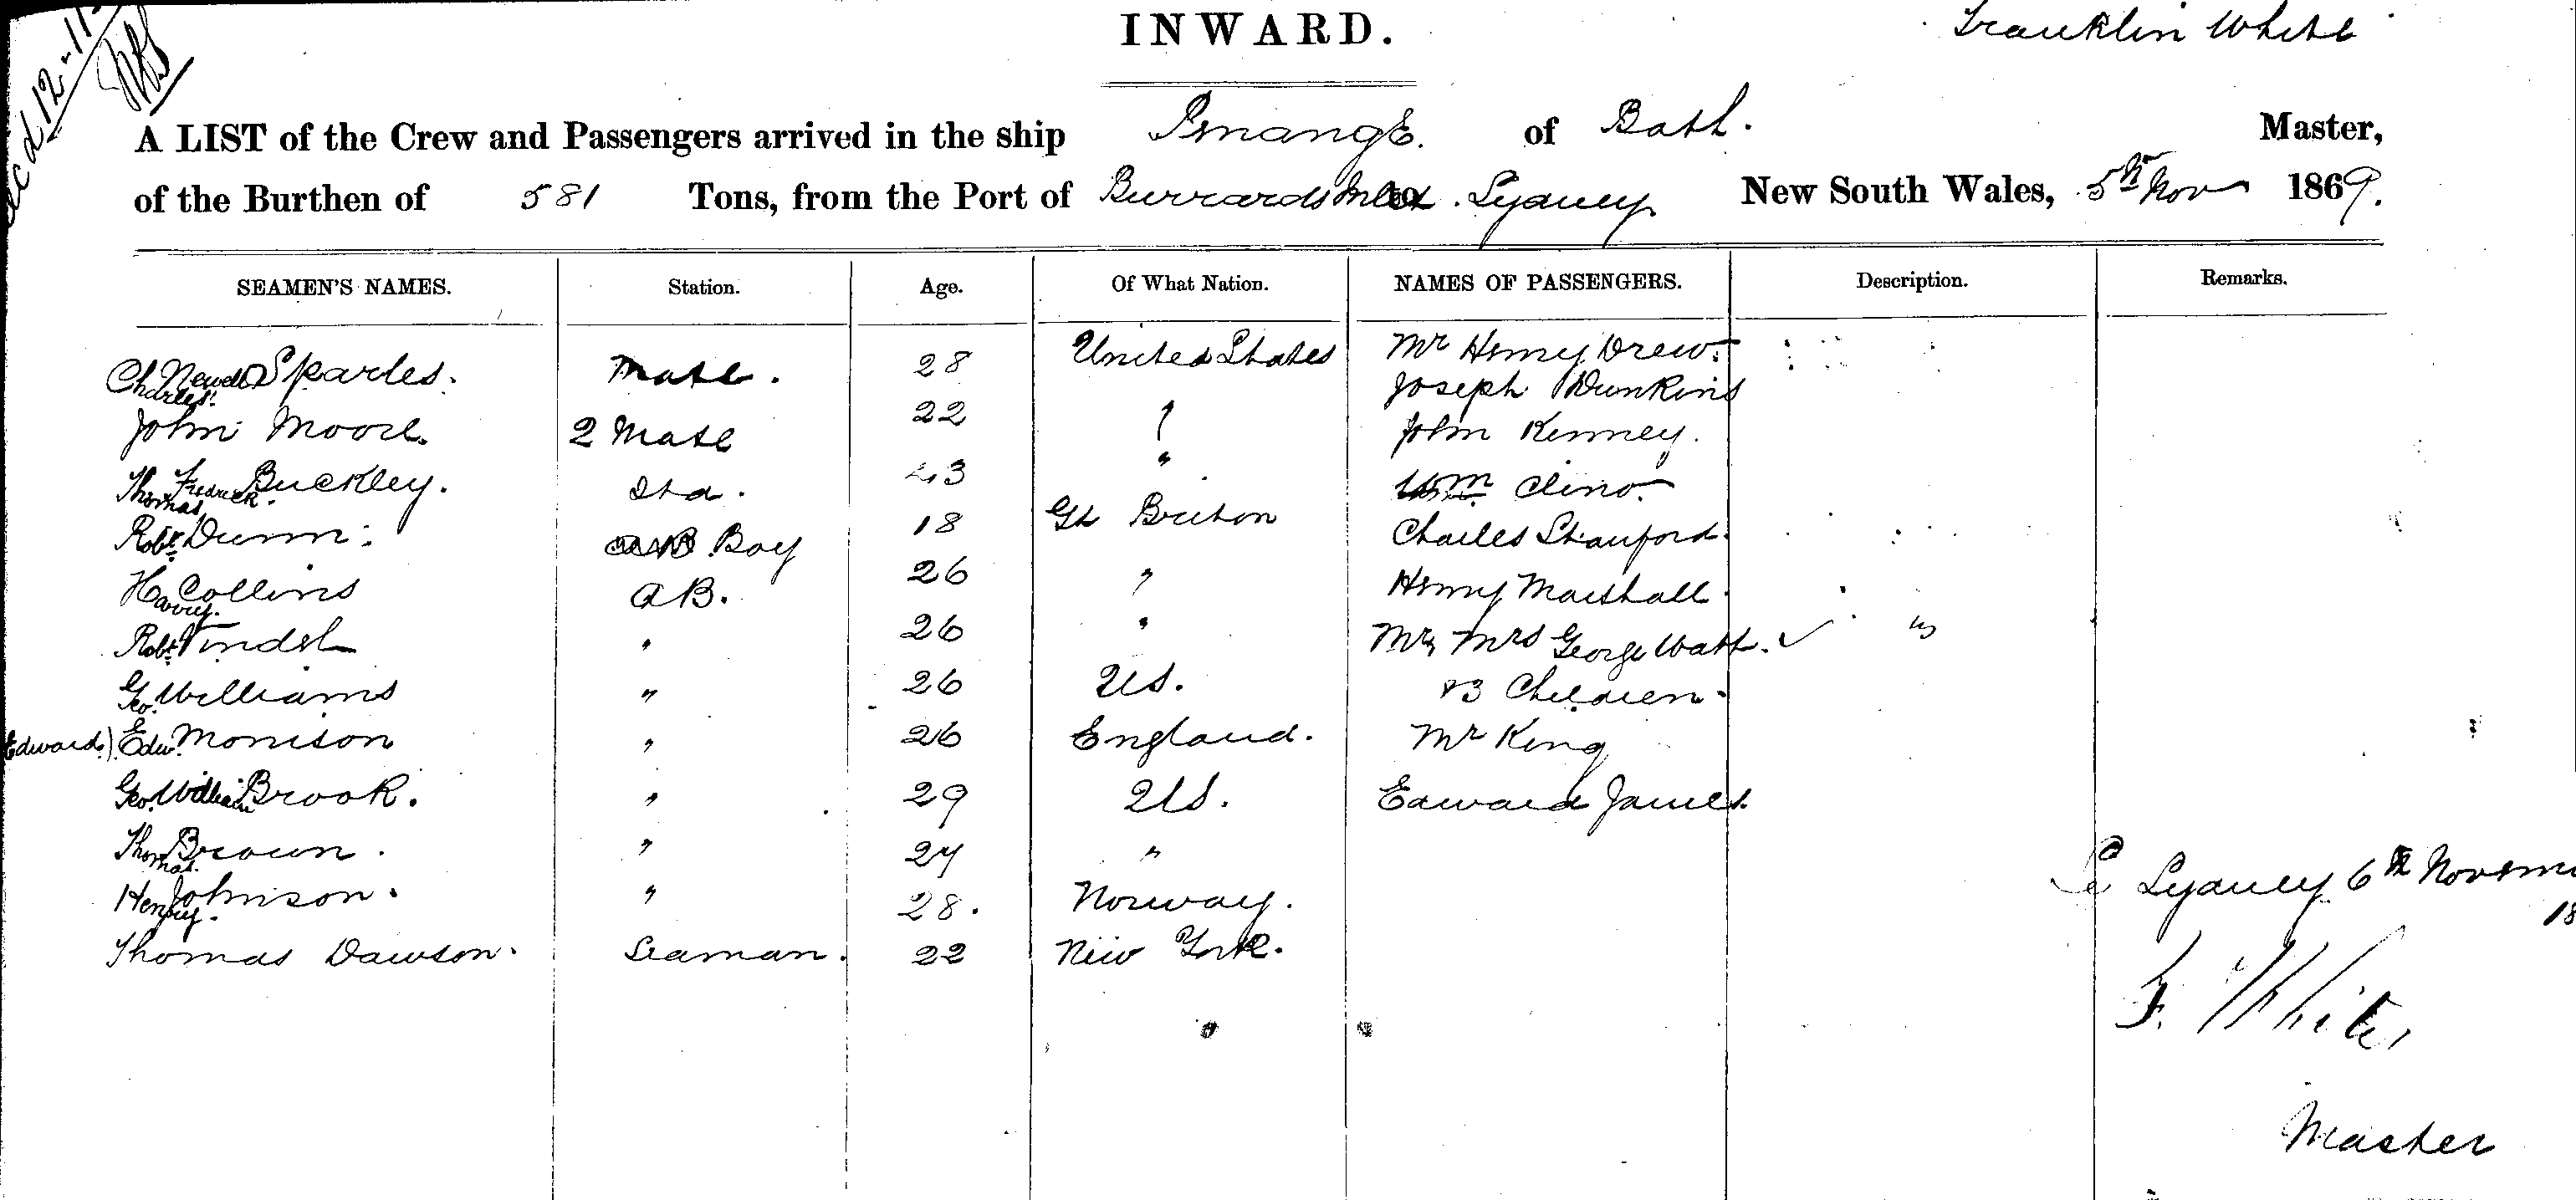 INWARD.
Franklin White
A LIST of the Crew and Passengers arrived in the ship Penang of Bath. Master,
of the Burthen of 581 Tons, from the Port of Burrards Inlet to Sydney New South Wales, 5th Nov 1869.
SEAMEN'S NAMES. Station. Age. Of What Nation. NAMES OF PASSENGERS. Description. Remarks.
Ch Newell Sparles. Mate. 28 United States Mr Henry Drew.
Charles.
Joseph Dunkins
John Moore. 2 Mate 22 " John Kenney.
Thomas Fredrick Buckley. Std. 43 " Wm Cline.
Robt Dunn. Boy 18 Gt Briton Charles Stanford.
Harry Collins AB. 26 " Henry Marshall.
Robt " 26 " Mr & Mrs George Watt.
Geo. Williams " 26 US. & 3 Children.
Edward) Edw. Morrison " 26 England. Mr King
Geo. William Brook. " 29 US. Edward James.
Thomas Brown. " 24 "
Henry Johnson. " 28. Norway.
Thomas Dawson. Seaman. 22 New York.
Sydney 6th Novem
18
F. White,
Master